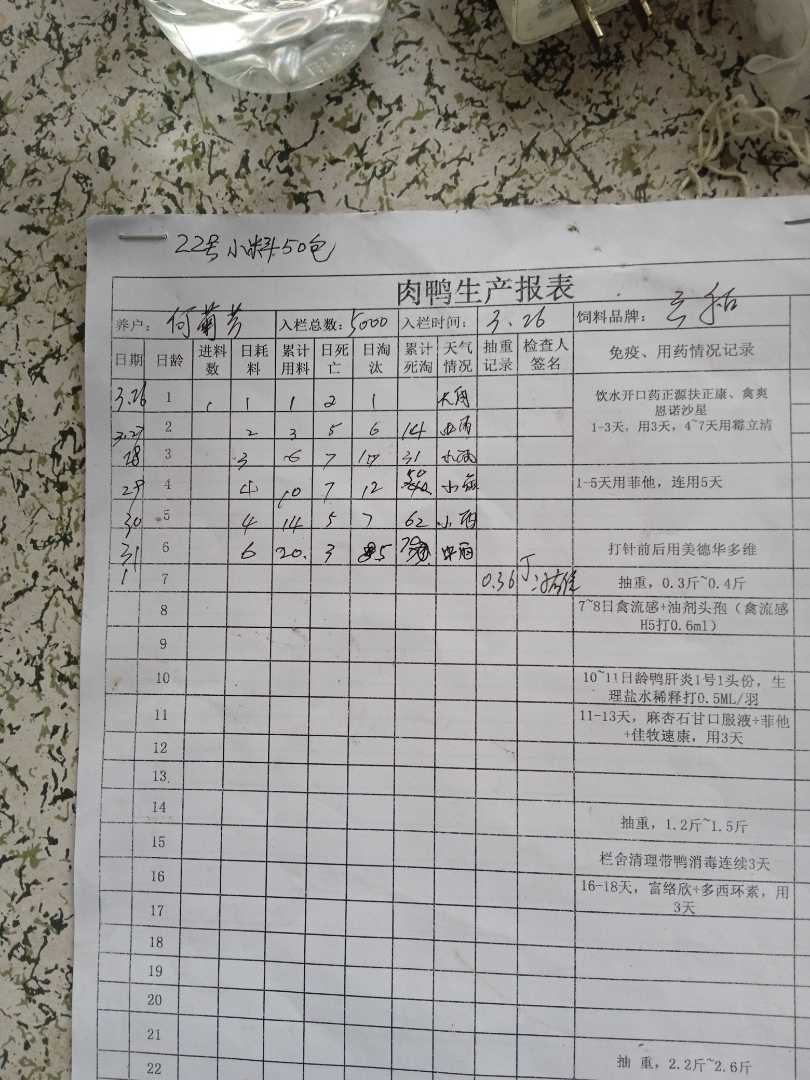 22号小料50包
肉鸭生产报表
养户： 何菊芳 入栏总数：5000 入栏时间： 3.26 饲料品牌：
日期 日龄 进料数 日耗料 累计用料 日死亡 日淘汰 累计死淘 天气情况 抽重记录 检查人签名 免疫、用药情况记录
3.26 1 1 1 2 1 饮水开口药正源扶正康、禽爽恩诺沙星
1-3天，用3天，4~7天用霉立清
3.27 2 2 3 5 6 14
28 3 3 6 7 10 31
29 4 4 10 7 12 50 小雨 1-5天用菲他，连用5天
30 5 4 14 5 7 62 小雨
31 6 6 20. 3 5 打针前后用美德华多维
1 7 0.36 抽重，0.3斤~0.4斤
8 7~8日禽流感+油剂头孢（禽流感H5打0.6ml）
9
10 10~11日龄鸭肝炎1号1头份，生理盐水稀释打0.5ML/羽
11 11-13天，麻杏石甘口服液+菲他+佳牧速康，用3天
12
13
14 抽重，1.2斤~1.5斤
15 栏舍清理带鸭消毒连续3天
16 16-18天，富络欣+多西环素，用3天
17
18
19
20
21
22 抽 重，2.2斤~2.6斤